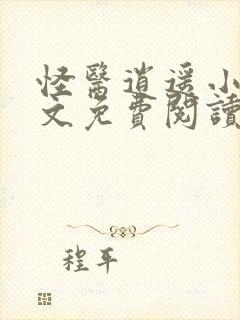 怪醫逍遥小
文免費閱讀
程平